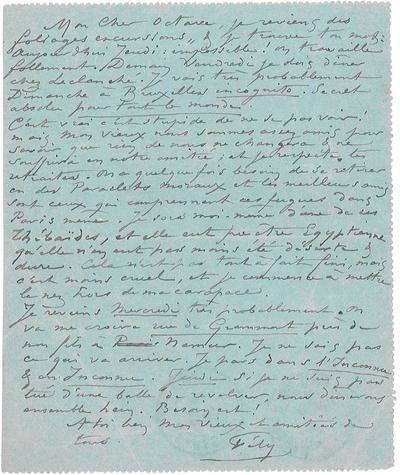 Mon cher Octave, je reviens des
"foliages excursions", & je trouve ton mot.
Aujourd'hui Jeudi: impossible! on travaille
follement. Demain Vendredi je dois dîner
chez Laclanché. Je vais très probablement
Dimanche à Bruxelles incognito. Secret
absolu pour tout le monde.
C'est vrai c'est stupide de ne se pas voir!
mais mon vieux nous sommes assez amis pour
savoir que rien de nous ne changera & ne
souffrira en notre amitié; et je respecte les
retraites. On a quelque fois besoin de se retirer
en des Paraclets moraux et les meilleurs amis
sont ceux qui comprennent ces fugues dans
Paris même. Je sors moi-même d'une de ces
Thébaïdes, et elle eut peu être Egyptienne
qu'elle n'en eut pas moins été déserte &
dure. Cela n'est pas tout à fait fini, mais
c'est moins cruel, et je commence à mettre
le nez hors de ma carapace.
Je reviens Mercredi très probablement. On
va me croire rue de Grammont près de
mon fils à Namur. Je ne sais pas
ce qui va arriver. Je pars dans l'Inconnu
& en Inconnu. Jeudi si je ne suis pas
tué d'une balle de revolver, nous dînerons
ensemble hein. Besoin est!
A toi bien mon vieux & amitiés de
tous.
Fély